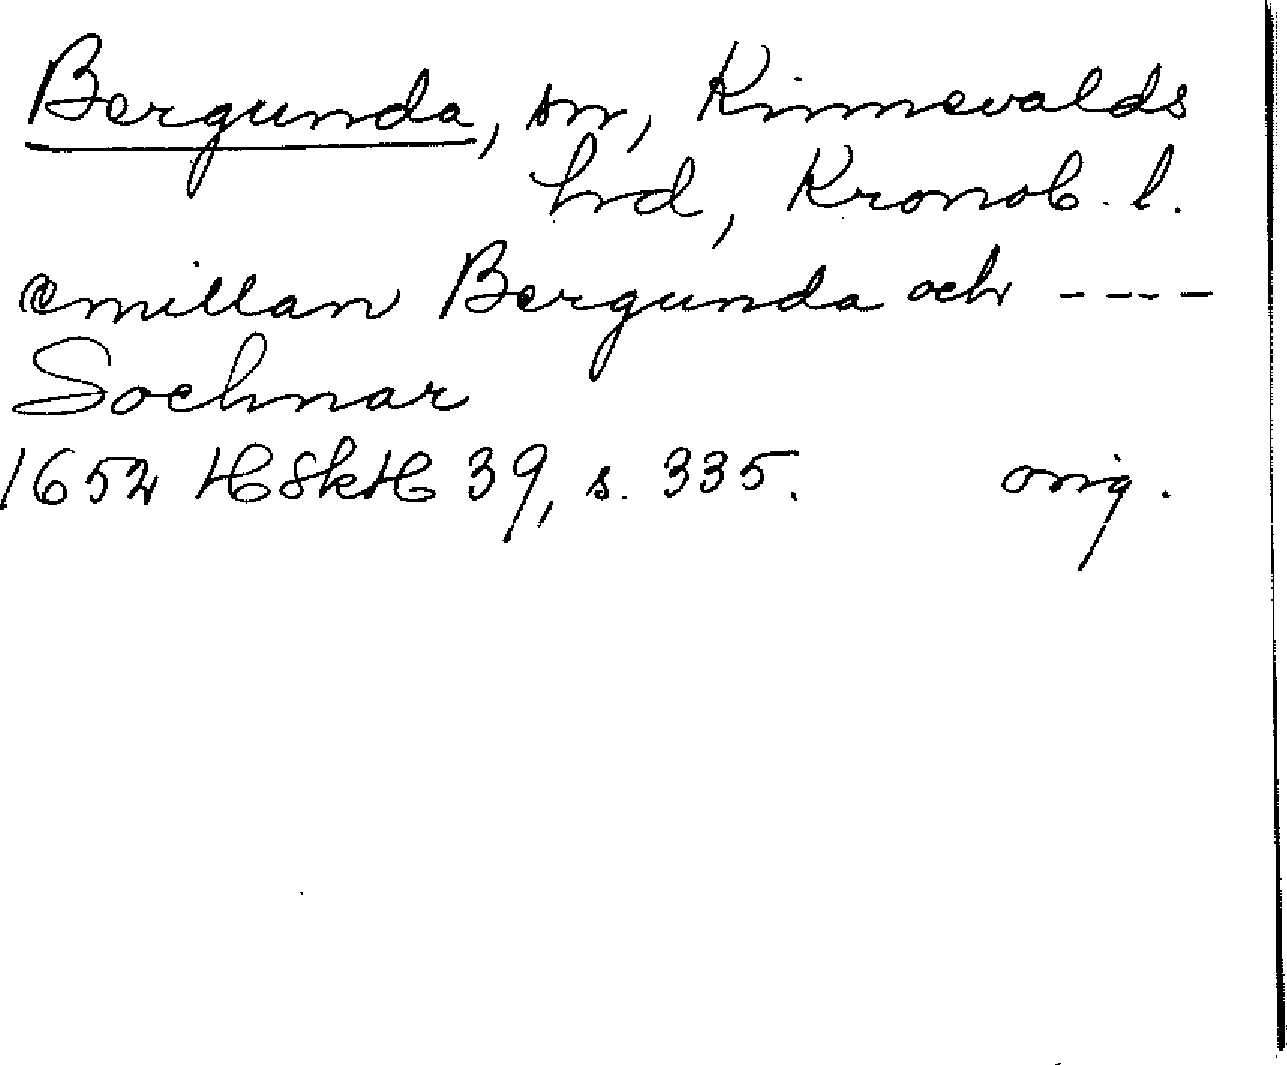 Bergunda, sn, Kinnevalds
hd, Kronob. l.
emillan Bergunda och ----
Sochnar
1652 HSkH 39, s. 335. orig.